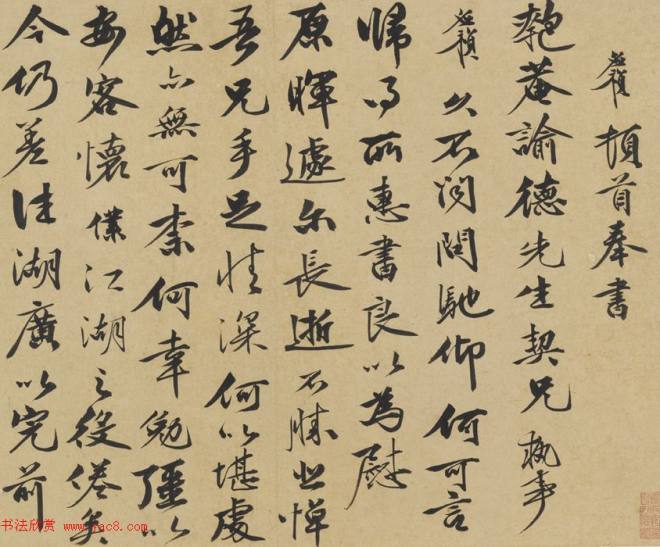 應禎頓首奉書
匏菴諭德先生契兄執事
應禎久不聞問馳仰何可言
歸得所惠書良以為慰
原暉遽尔長逝不勝悲悼
吾兄手足情深何以堪處
然亦無可柰何幸勉彊以
安客懷僕江湖之役倦矣
今仍差往湖廣以完前
书法欣赏 www.yac8.com